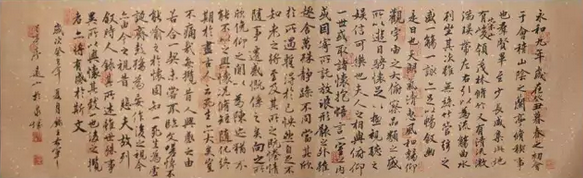 永和九年歲在癸丑暮春之初會
于會稽山陰之蘭亭脩稧事
也羣賢畢至少長咸集此地
有崇山峻領茂林脩竹又有清流激
湍暎帶左右引以為流觴曲水
列坐其次雖無絲竹管弦之
盛一觴一詠亦足以暢敘幽情
是日也天朗氣清惠風和暢仰
觀宇宙之大俯察品類之盛
所以遊目騁懷足以極視聽之
娛信可樂也夫人之相與俯仰
一世或取諸懷抱悟言一室之內
或因寄所託放浪形骸之外雖
趣舍萬殊靜躁不同當其欣
於所遇蹔得於己怏然自足不
知老之將至及其所之既惓情
隨事遷感慨係之矣向之所
欣俛仰之間以為陳迹猶不
能不以之興懷況脩短隨化終
期於盡古人云死生亦大矣豈
不痛哉每攬昔人興感之由
若合一契未嘗不臨文嗟悼不
能喻之於懷固知一死生為虛
誕齊彭殤為妄作後之視今
亦由今之視昔悲夫故列
敘時人錄其所述雖世殊事
異所以興懷其致一也後之攬
者亦將有感於斯文
歲次癸巳年夏月錄王右軍